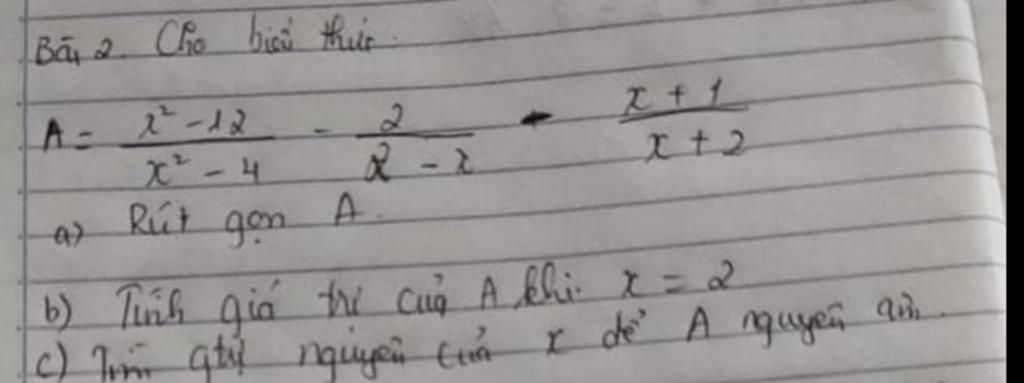 Bài 2. Cho biểu thức.
A = \frac{x^2 - 12}{x^2 - 4} - \frac{2}{2 - x} - \frac{x + 1}{x + 2}
a) Rút gọn A.
b) Tính giá trị của A khi x = 2
c) Tìm gtrị nguyên của x để A nguyên âm.